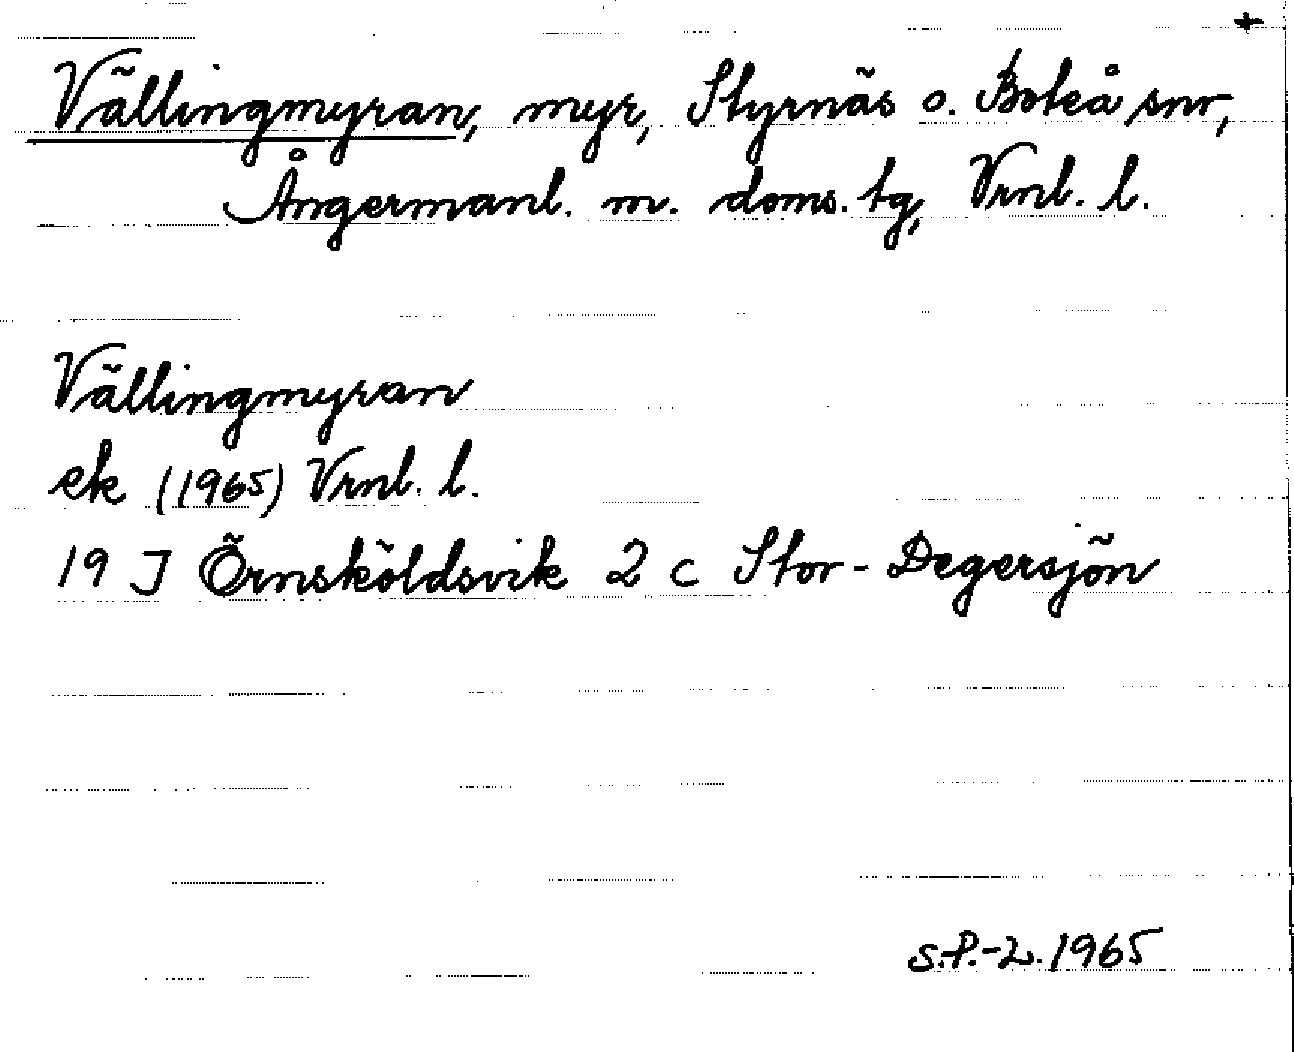 +
Vällingmyran, myr, Styrnäs o. Boteå snr,
Ångermanl. m. doms. tg, Vrnl. l.
Vällingmyran
ek (1965) Vrnl. l.
19 J Örnsköldsvik 2 c Stor-Degersjön
S.P.-L. 1965